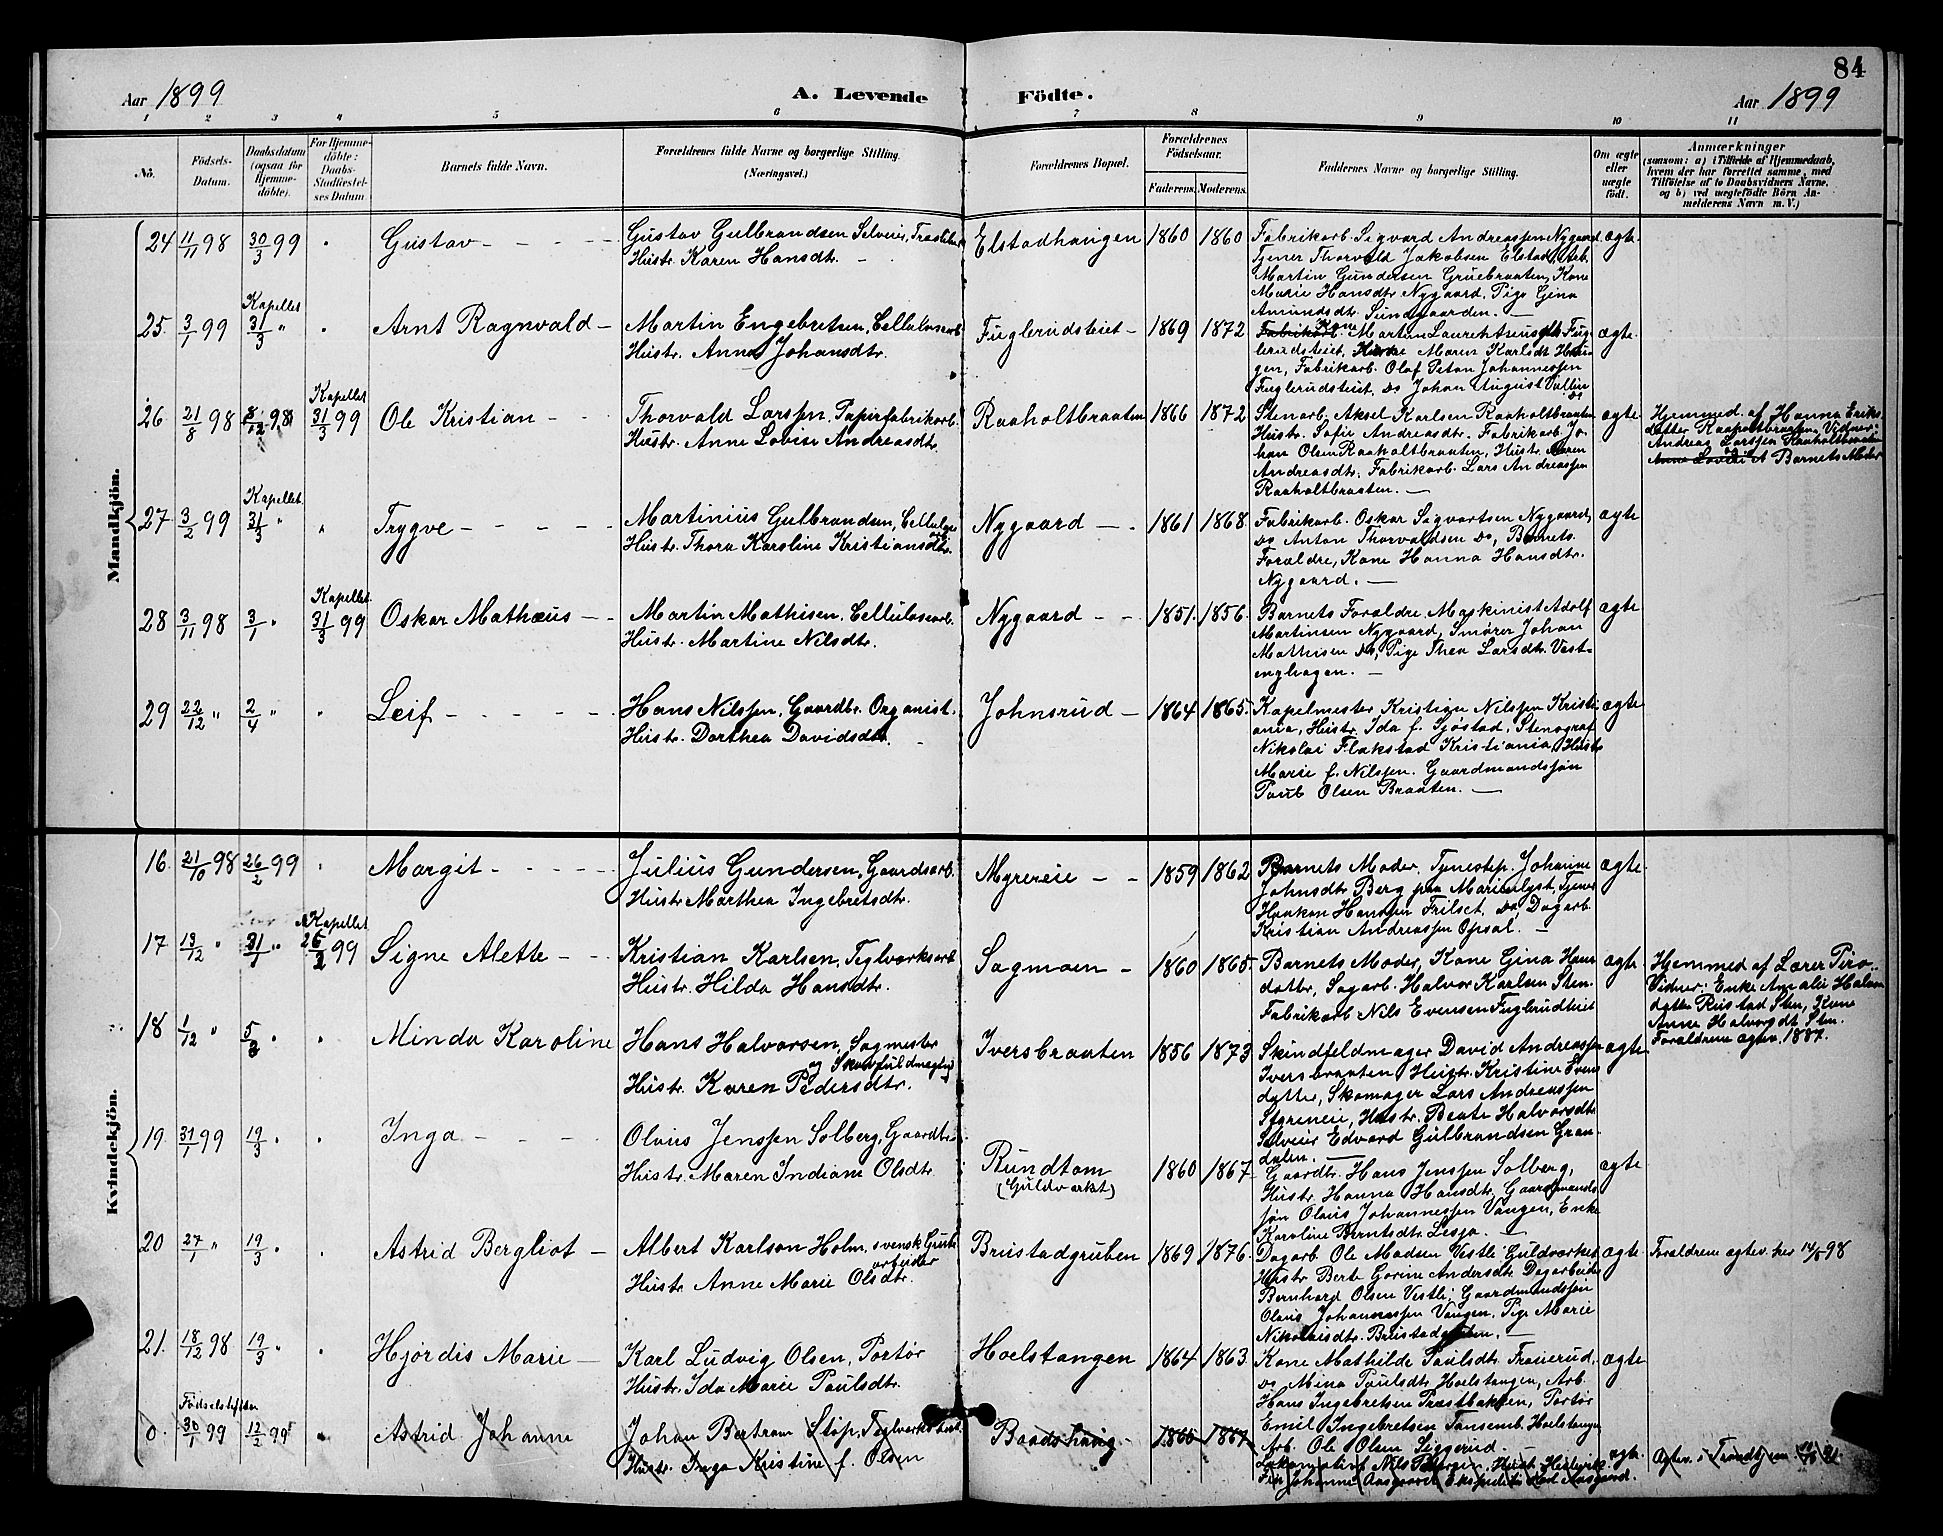 84
Aar 1899
A. Levende Födte.
Aar 1899
1 2 3 4 5 6 7 8 9 10 11
No.
Födsels-Datum.
Daabsdatum (ogsaa for Hjemmedöbte).
For Hjemmedöbte: Daabs-Stadfæstelses Datum
Barnets fulde Navn.
Forældrenes fulde Navne og borgerlige Stilling. (Næringsvei.)
Forældrenes Bopæl.
Forældrenes Födselsaar.
Faderens. Moderens.
Faddernes Navne og borgerlige Stilling.
Om ægte eller uægte født.
Anmærkninger
(saasom: a) i Tilfælde af Hjemmedaab, hvem der har forrettet samme, med Tilföielse af to Daabsvidners Navne, og b) ved uægtefödte Börn Anmelderens Navn m. V.)
Mandkjön.
24 11/11 98 30/3 99 Gustav
Gustav Gulbrandsen Selveier,
Hustr. Karen Hansdtr.
Elstadhaugen 1860 1860
Fabrikarb. Sigvard Andreassen Nygaard
Tjener Thorvald Jakobsen Elstad, Arb.
Martin Gundersen Gruebraaten, Kone
Marie Hansdtr Nygaard, Pige Gina
Amundsdtr Sundgaarden.
ægte
25. 3/1 99 Kapellet 31/3 " Arnt Ragnvald
Martin Engebretsen, Cellulosearb.
Hustr. Anna Johansdtr.
Fuglerudsteiet 1869 1872
Fuglerudsteiet, Maren Karlsdt Haugen, Fabrikarb. Olaf Johannessen
Fuglerudsteiet, Do Johan August
ægte
26 21/8 98 8/12 98 Kapellet 31/3 99 Ole Kristian
Thorvald Larssen, Papirfabrikarb.
Hustr. Anne Lovise Andreasdtr.
Raaholtbraaten 1866 1872
Stenarb. Aksel Karlsen Raaholtbraaten
Hustr. Sofie Andreasdtr. Fabrikarb. Johan Olsen Raaholtbraaten, Hustr. Maren
Andreasdtr, Fabrikarb. Lars Andreassen
Raaholtbraaten.
ægte
Hjemmed. af Hanna Eriksdatter Raaholtbraaten. Vidner:
Andreas Larssen Raaholtbraaten
Barnets Moder
27 3/2 99 Kapellet 31/3 " " Trygve
Martinius Gulbrandsen, Cellulosearb.
Hustr. Thora Karoline Kristiansdtr.
Nygaard 1861 1868
Fabrikarb. Oskar Sigvartsen Nygaard,
Do Anton Thorvaldsen Do, Barnets
Forældre, Kone Hanna Hansdtr.
Nygaard.
ægte
28 3/11 98 3/1 " Kapellet 31/3 99 Oskar Mathæus
Martin Mathisen, Cellulosearb.
Hustr. Martine Nilsdtr.
Nygaard 1851. 1856.
Barnets Forældre. Maskinist Adolf
Martinsen Nygaard, Smører Johan
Mathisen Do, Pige Thea Larsdtr. Vestenghagen.
ægte
29 22/12 " 2/4 " Leif
Hans Nilssen, Gaardbr. Organist.
Hustr. Dorthea Davidsdtr.
Johnsrud 1864 1865.
Kapelmester Kristian Nilssen Kristiania, Hustr. Ida f. Sjøstad, Stenograf
Nikolai Flakstad Kristiania, Hustr.
Marie f. Nilssen. Gaardmandssøn
Paul Olsen Braaten.
ægte
Kvindekjön.
16. 21/10 98 26/2 99 Margit
Julius Gundersen, Gaardsarb.
Hustr. Marthea Ingebretsdtr.
Myrereie 1859 1862
Barnets Moder. Tjenestep. Johanne
Johnsdtr Berg paa Marienlyst, Tjener
Haakon Hanssen Frilset, Do, Dagarb.
Kristian Andreassen Opsal.
ægte
17 13/12 " 31/1 " Kapellet 26/2 99 Signe Alette
Kristian Karlsen, Teglværksarb
Hustr. Hilda Hansdtr.
Sagmoen 1860 1865.
Barnets Moder, Kone Gina Hansdatter, Sagarb. Halvor Karlsen Sten.
Fabrikarb Nils Evensen Fuglerudteiet
ægte
Hjemmed af Lærer Piro.
Vidner: Enke Amalie Halvorsdatter Rustad Sten, Kone
Anne Halvorsdt Sten.
Forældrene ægtev. 1887.
18 1/12 " 5/3 " Minda Karoline
Hans Halvorsen, Sagmester
og Skovfuldmægtig
Hustr. Karen Pedersdtr.
Iversbraaten 1856 1873
Skindfeldmager David Andreassen
Iversbraaten Hustr. Kristine Svensdatter, Skomager Lars Andreassen
Hustr. Beate Halvorsdtr
Selveier Edvard Gulbrandsen Grandalen.
ægte
19. 31/1 99 19/3 " Inga
Olaus Jenssen Solberg, Gaardbr.
Hustr. Maren Indiane Olsdtr.
Rundtom
(Guldværket)
1860 1867
Gaardbr. Hans Jenssen Solberg,
Hustr. Hanna Hansdtr, Gaardmandssøn Olaus Johannessen Vangen, Enke
Karoline Berntsdtr. Lesja.
ægte
20 27/1 " 19/3 " Astrid Bergliot
Albert Karlson Holm, svensk Grubearbeider
Hustr. Anne Marie Olsdtr.
Brustadgruben 1869 1876.
Dagarb Ole Madsen Vestli Guldværket
Hustr Berte Gorine Andersdtr. Dagarbeider
Bernhard Olsen Vestli, Gaardmandssøn
Olaus Johannessen Vangen. Pige Marie
Nikolaisdtr. Brustadgruben.
ægte
Forældrene ægtev. her 14/5 98
21. 18/12 98 19/3 " Hjørdis Marie
Karl Ludvig Olsen, Portør
Hustr. Ida Marie Paulsdtr.
Hoelstangen 1864 1863
Kone Mathilde Paulsdtr.
Do Mina Paulsdtr. Hoelstangen, Arb.
Hans Ingebretsen Præstbakken, Portør
Emil Ingebretsen Hoelstangen
Arb. Ole Olsen Siggerud.
ægte
Fødselstiften
0. 30/1 99 12/2 99 Astrid Johanne
Johan Bertram Stop, Teglværksbest.
Hustr. Inga Kristine f. Olsen
Baadshaug 1865 1867
Lokomotivf. Nils
Johanne Aasgaard
ægte.
Ægtev. i Trondhjem